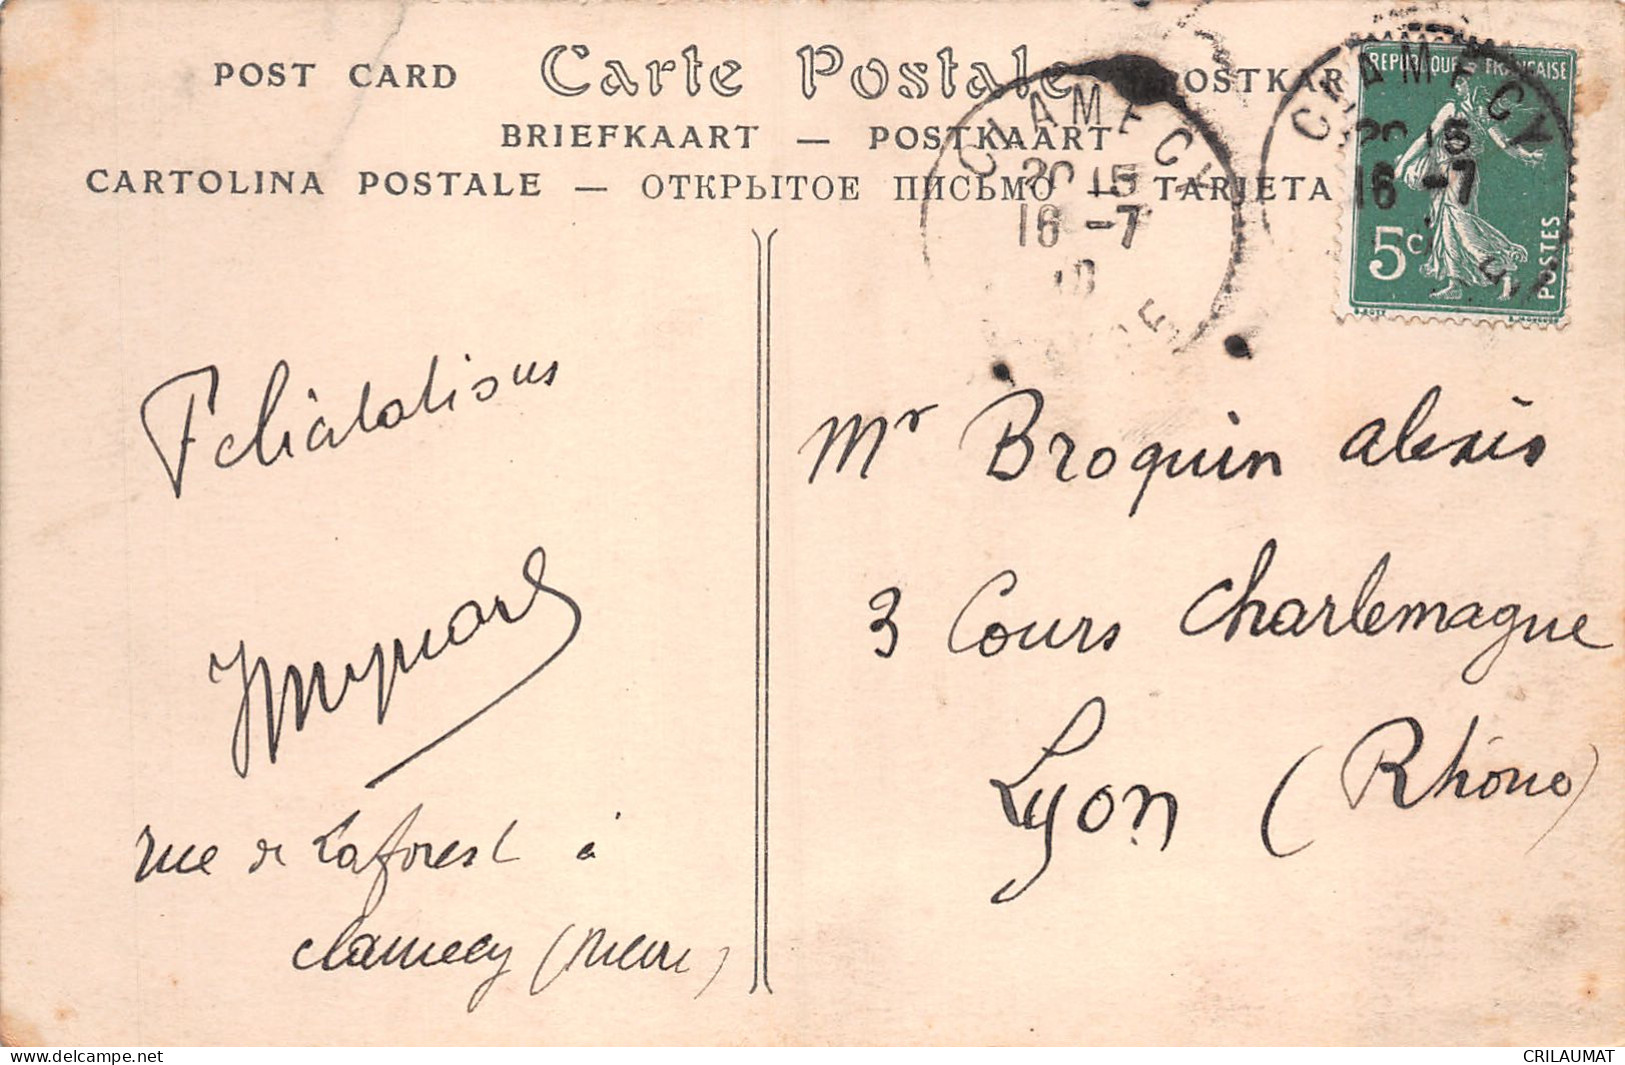 POST CARD Carte Postale POSTKAR
BRIEFKAART — POSTKAART
CARTOLINA POSTALE — ОТКРЫТОЕ ПИСЬМО — TARJETA
CLAMECY
20 15
16 -7
10
CLAMECY
20 15
16 -7
REPUBLIQUE FRANÇAISE
5c
POSTES
Feliatations
rue de Laforest à
Clamecy (Nièvre)
Mr Broquin alexis
3 Cours Charlemagne
Lyon (Rhône)
www.delcampe.net
CRILAUMAT